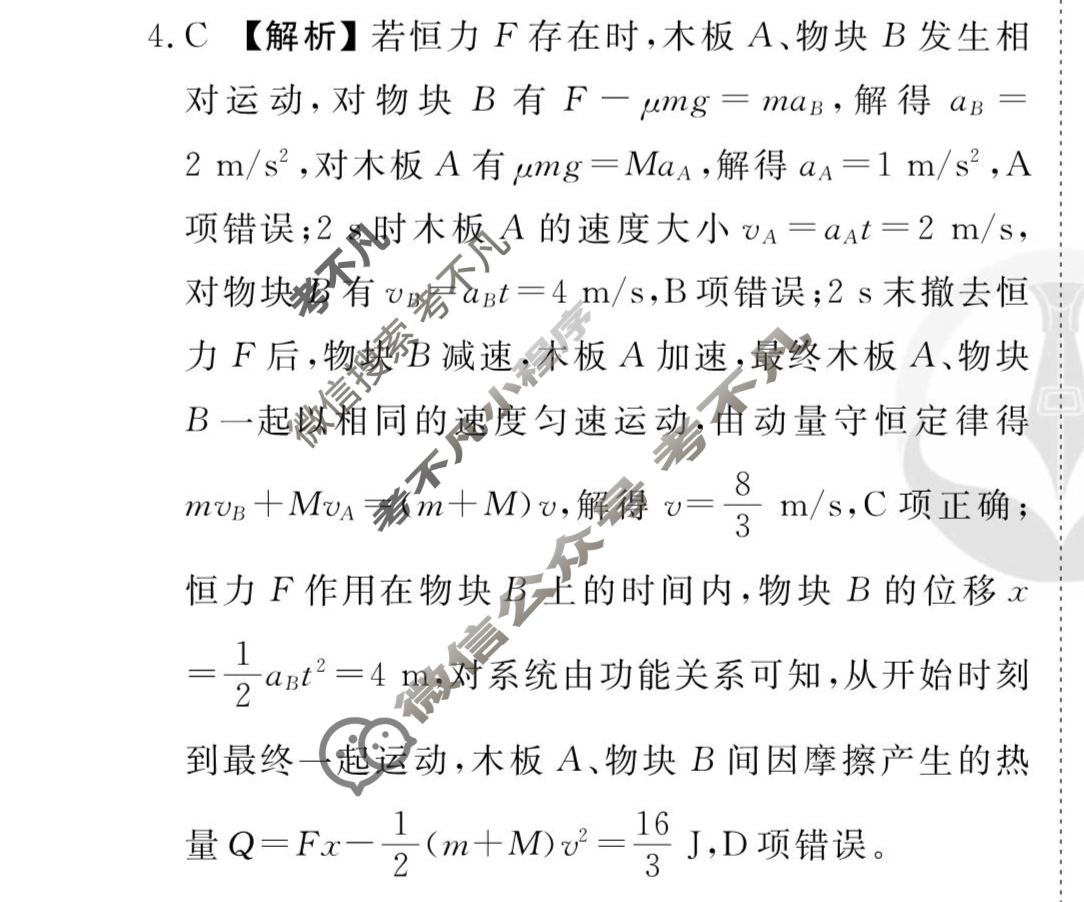 4. C 【解析】若恒力 F 存在时,木板 A、物块 B 发生相
对运动,对物块 B 有 F − μmg = ma_B,解得 a_B =
2 m/s²,对木板 A 有 μmg = Ma_A,解得 a_A = 1 m/s²,A
项错误;2 s 时木板 A 的速度大小 v_A = a_A t = 2 m/s,
对物块 B 有 v_B = a_B t = 4 m/s,B 项错误;2 s 末撤去恒
力 F 后,物块 B 减速,木板 A 加速,最终木板 A、物块
B 一起以相同的速度匀速运动,由动量守恒定律得
mv_B + Mv_A = (m + M)v,解得 v = 8/3 m/s,C 项正确;
恒力 F 作用在物块 B 上的时间内,物块 B 的位移 x
= 1/2 a_B t² = 4 m,对系统由功能关系可知,从开始时刻
到最终一起运动,木板 A、物块 B 间因摩擦产生的热
量 Q = Fx − 1/2 (m + M)v² = 16/3 J,D 项错误。
考不凡
微信搜索 考不凡
考不凡小程序
微信公众号 考不凡